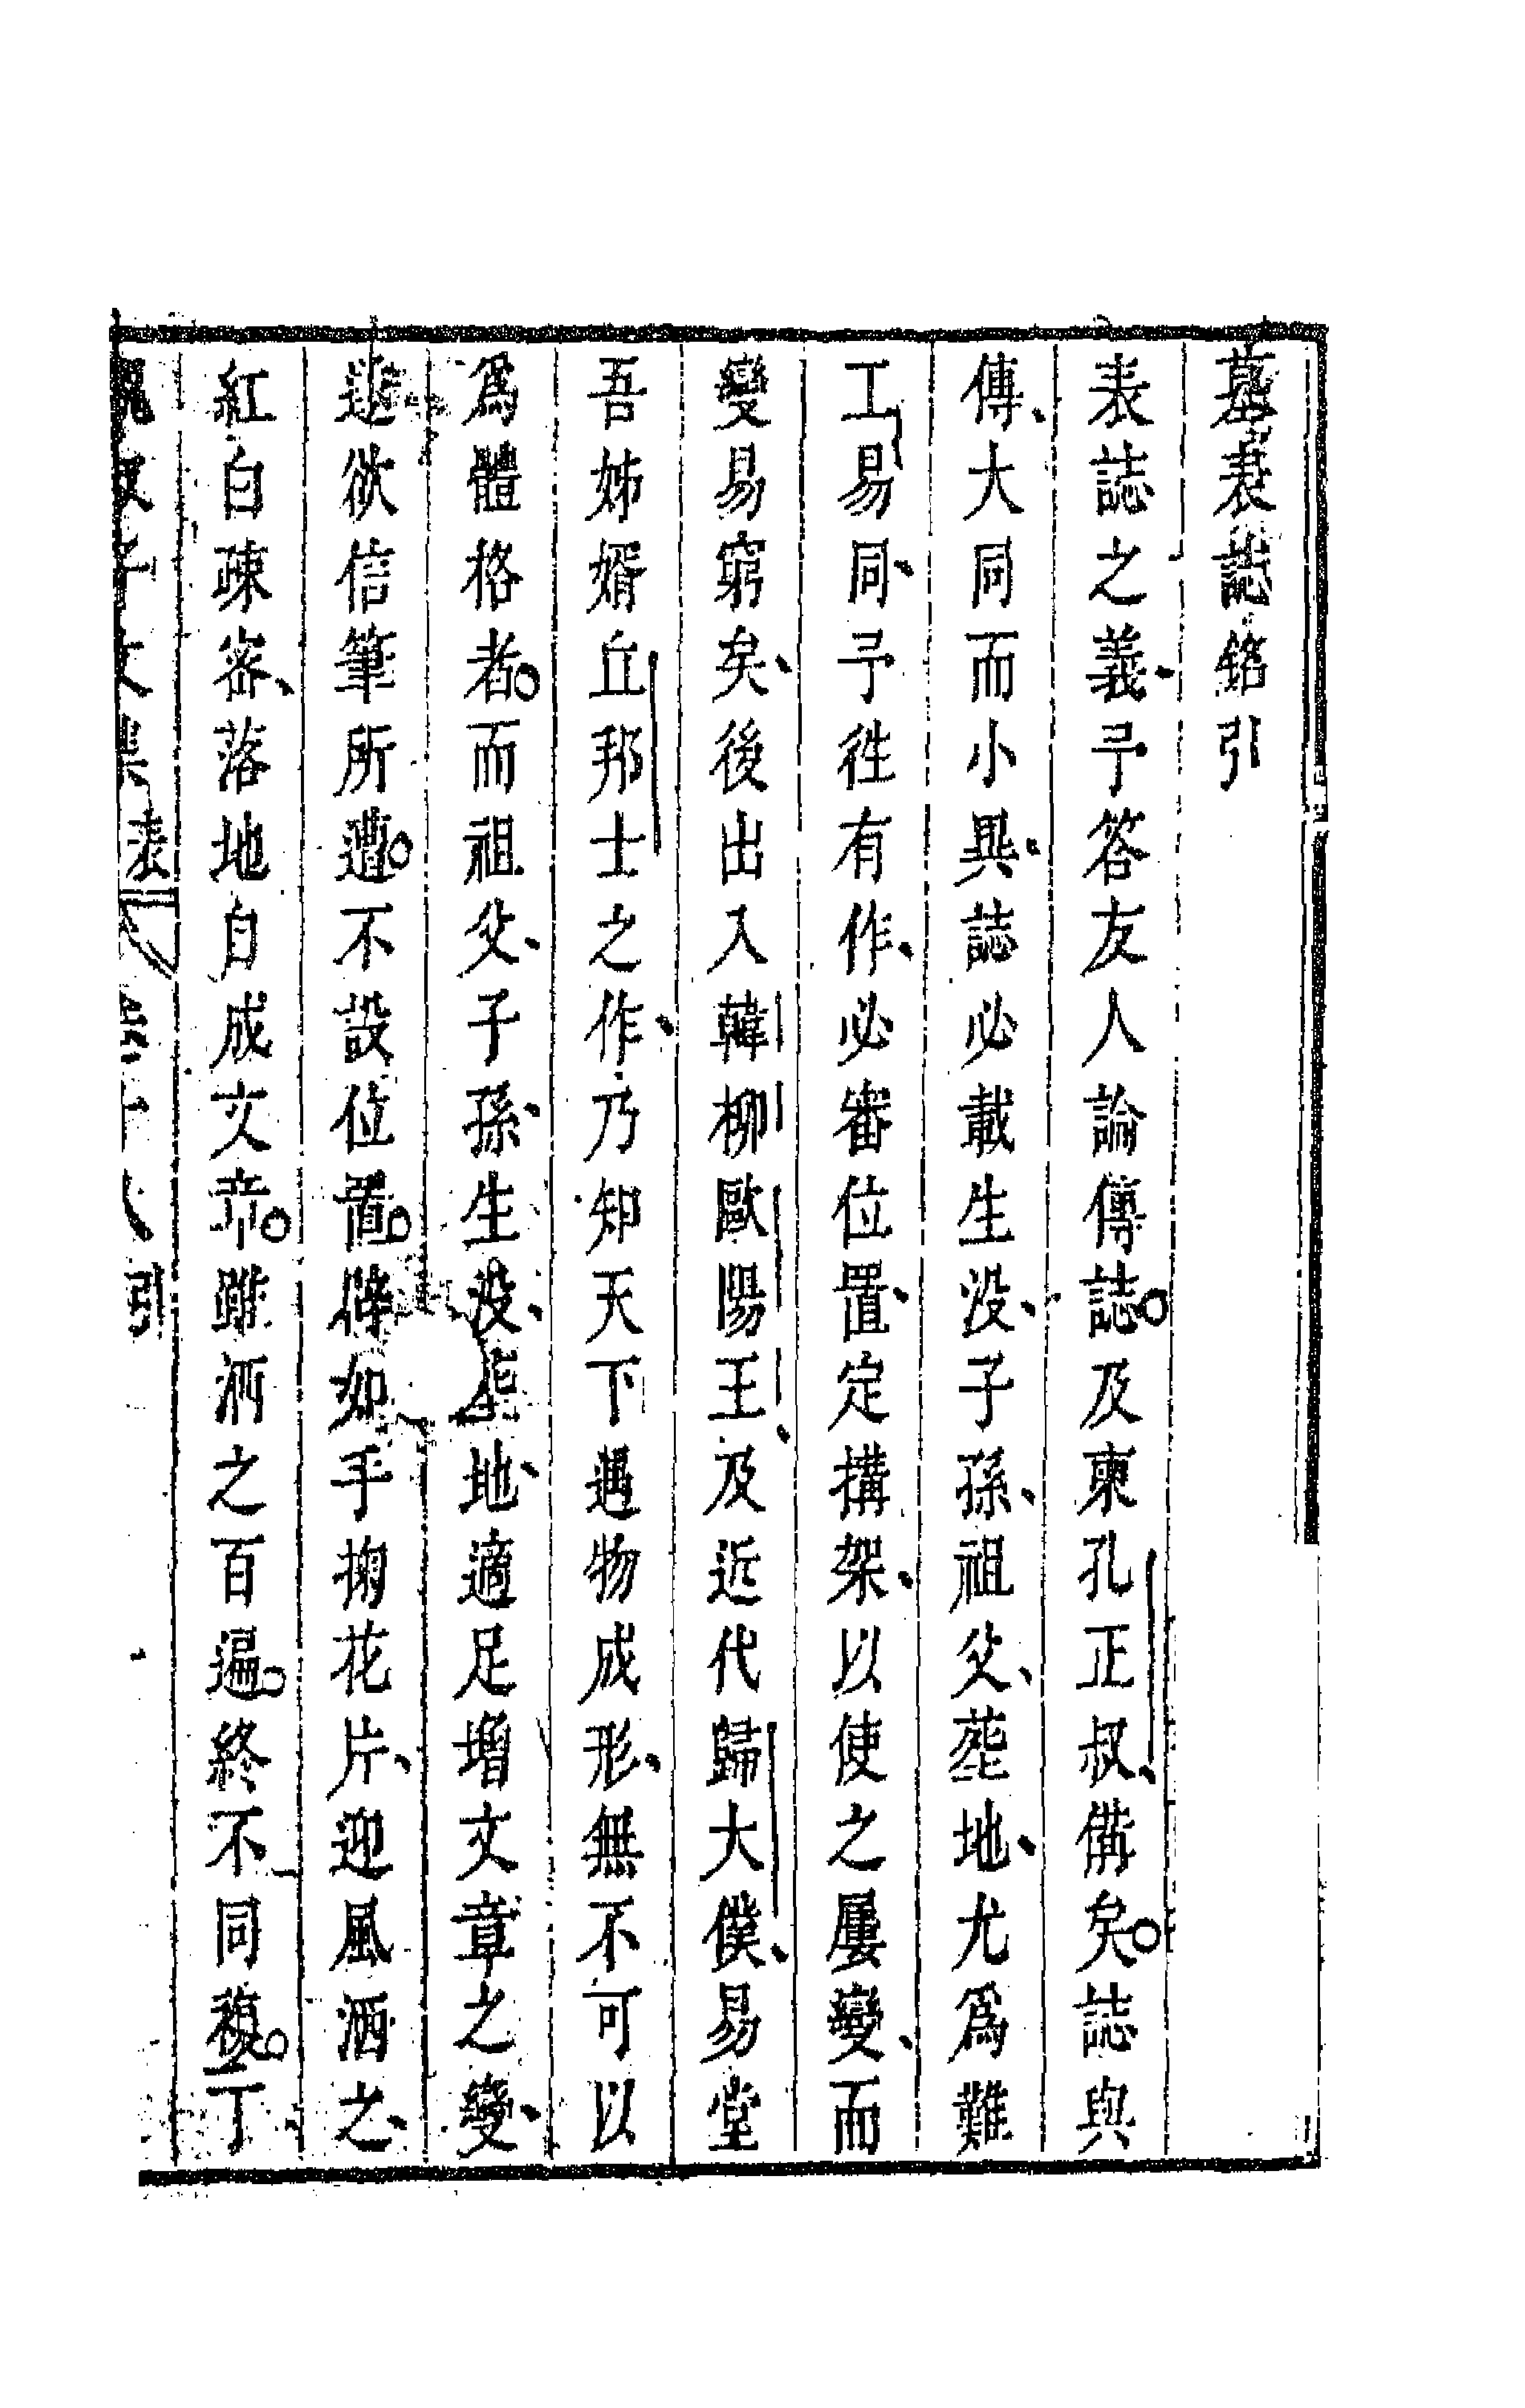 墓表誌銘引
表誌之義予答友人論傳誌及柬孔正叔備矣誌與
傳大同而小異誌必載生没子孫祖父葬地尤爲難
工易同予徃有作必審位置定搆架以使之屢變而
變易窮矣後出入韓柳歐陽王及近代歸大僕易堂
吾姊婿丘邦士之作乃知天下遇物成形無不可以
爲體格者而祖父子孫生没塟地適足增文章之變
遂欲信筆所遭不設位置譬如手掬花片迎風洒之
紅白疎密落地自成文章雖洒之百遍終不同複丁
魏叔子文集表 卷十八 引